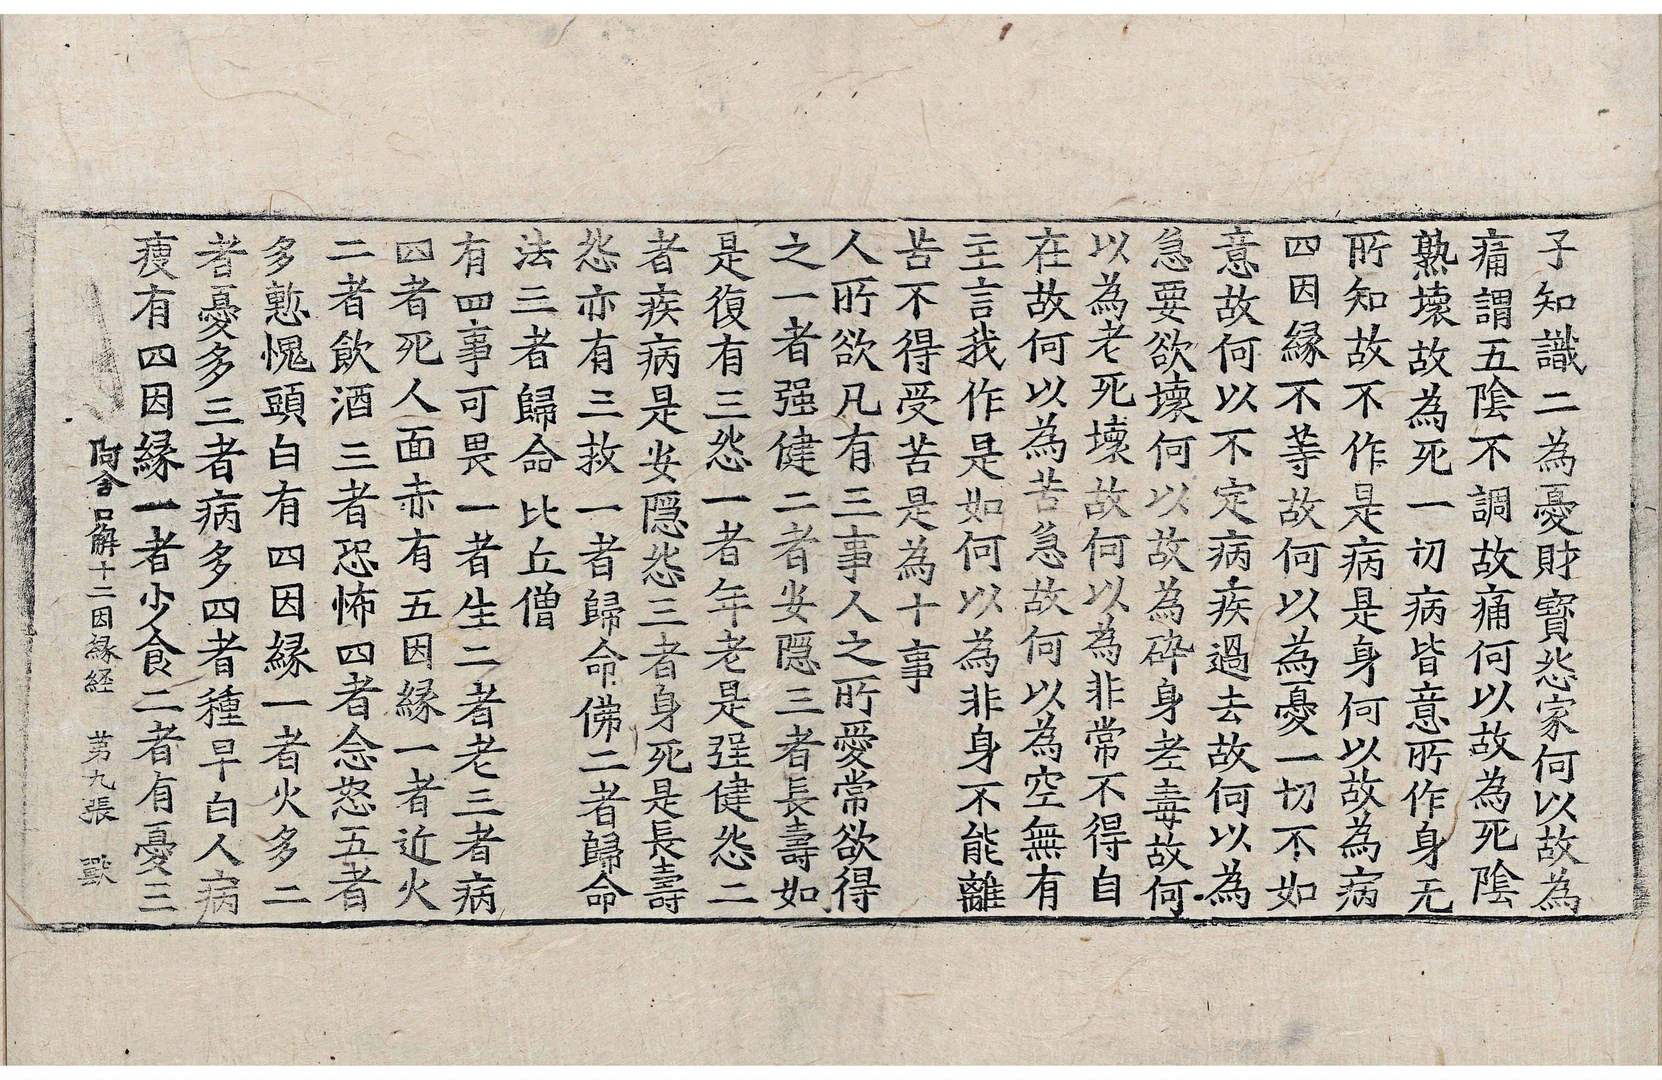 子知識二為憂財寶恣家何以故為
痛謂五陰不調故痛何以故為死陰
熟壞故為死一切病皆意所作身无
所知故不作是病是身何以故為病
四因緣不等故何以為憂一切不如
意故何以不定病疾過去故何以為
急要欲壞何以故為碎身老毒故何
以為老死壞故何以為非常不得自
在故何以為苦急故何以為空無有
主言我作是如何以為非身不能離
苦不得受苦是為十事
人所欲凡有三事人之所愛常欲得
之一者强健二者安隱三者長壽如
是復有三怨一者年老是强健怨二
者疾病是安隱怨三者身死是長壽
怨亦有三救一者歸命佛二者歸命
法三者歸命比丘僧
有四事可畏一者生二者老三者病
四者死人面赤有五因緣一者近火
二者飲酒三者恐怖四者念怒五者
多慙愧頭白有四因緣一者火多二
者憂多三者病多四者種早白人病
瘦有四因緣一者少食二者有憂三
阿含口解十二因緣経 苐九張 獸